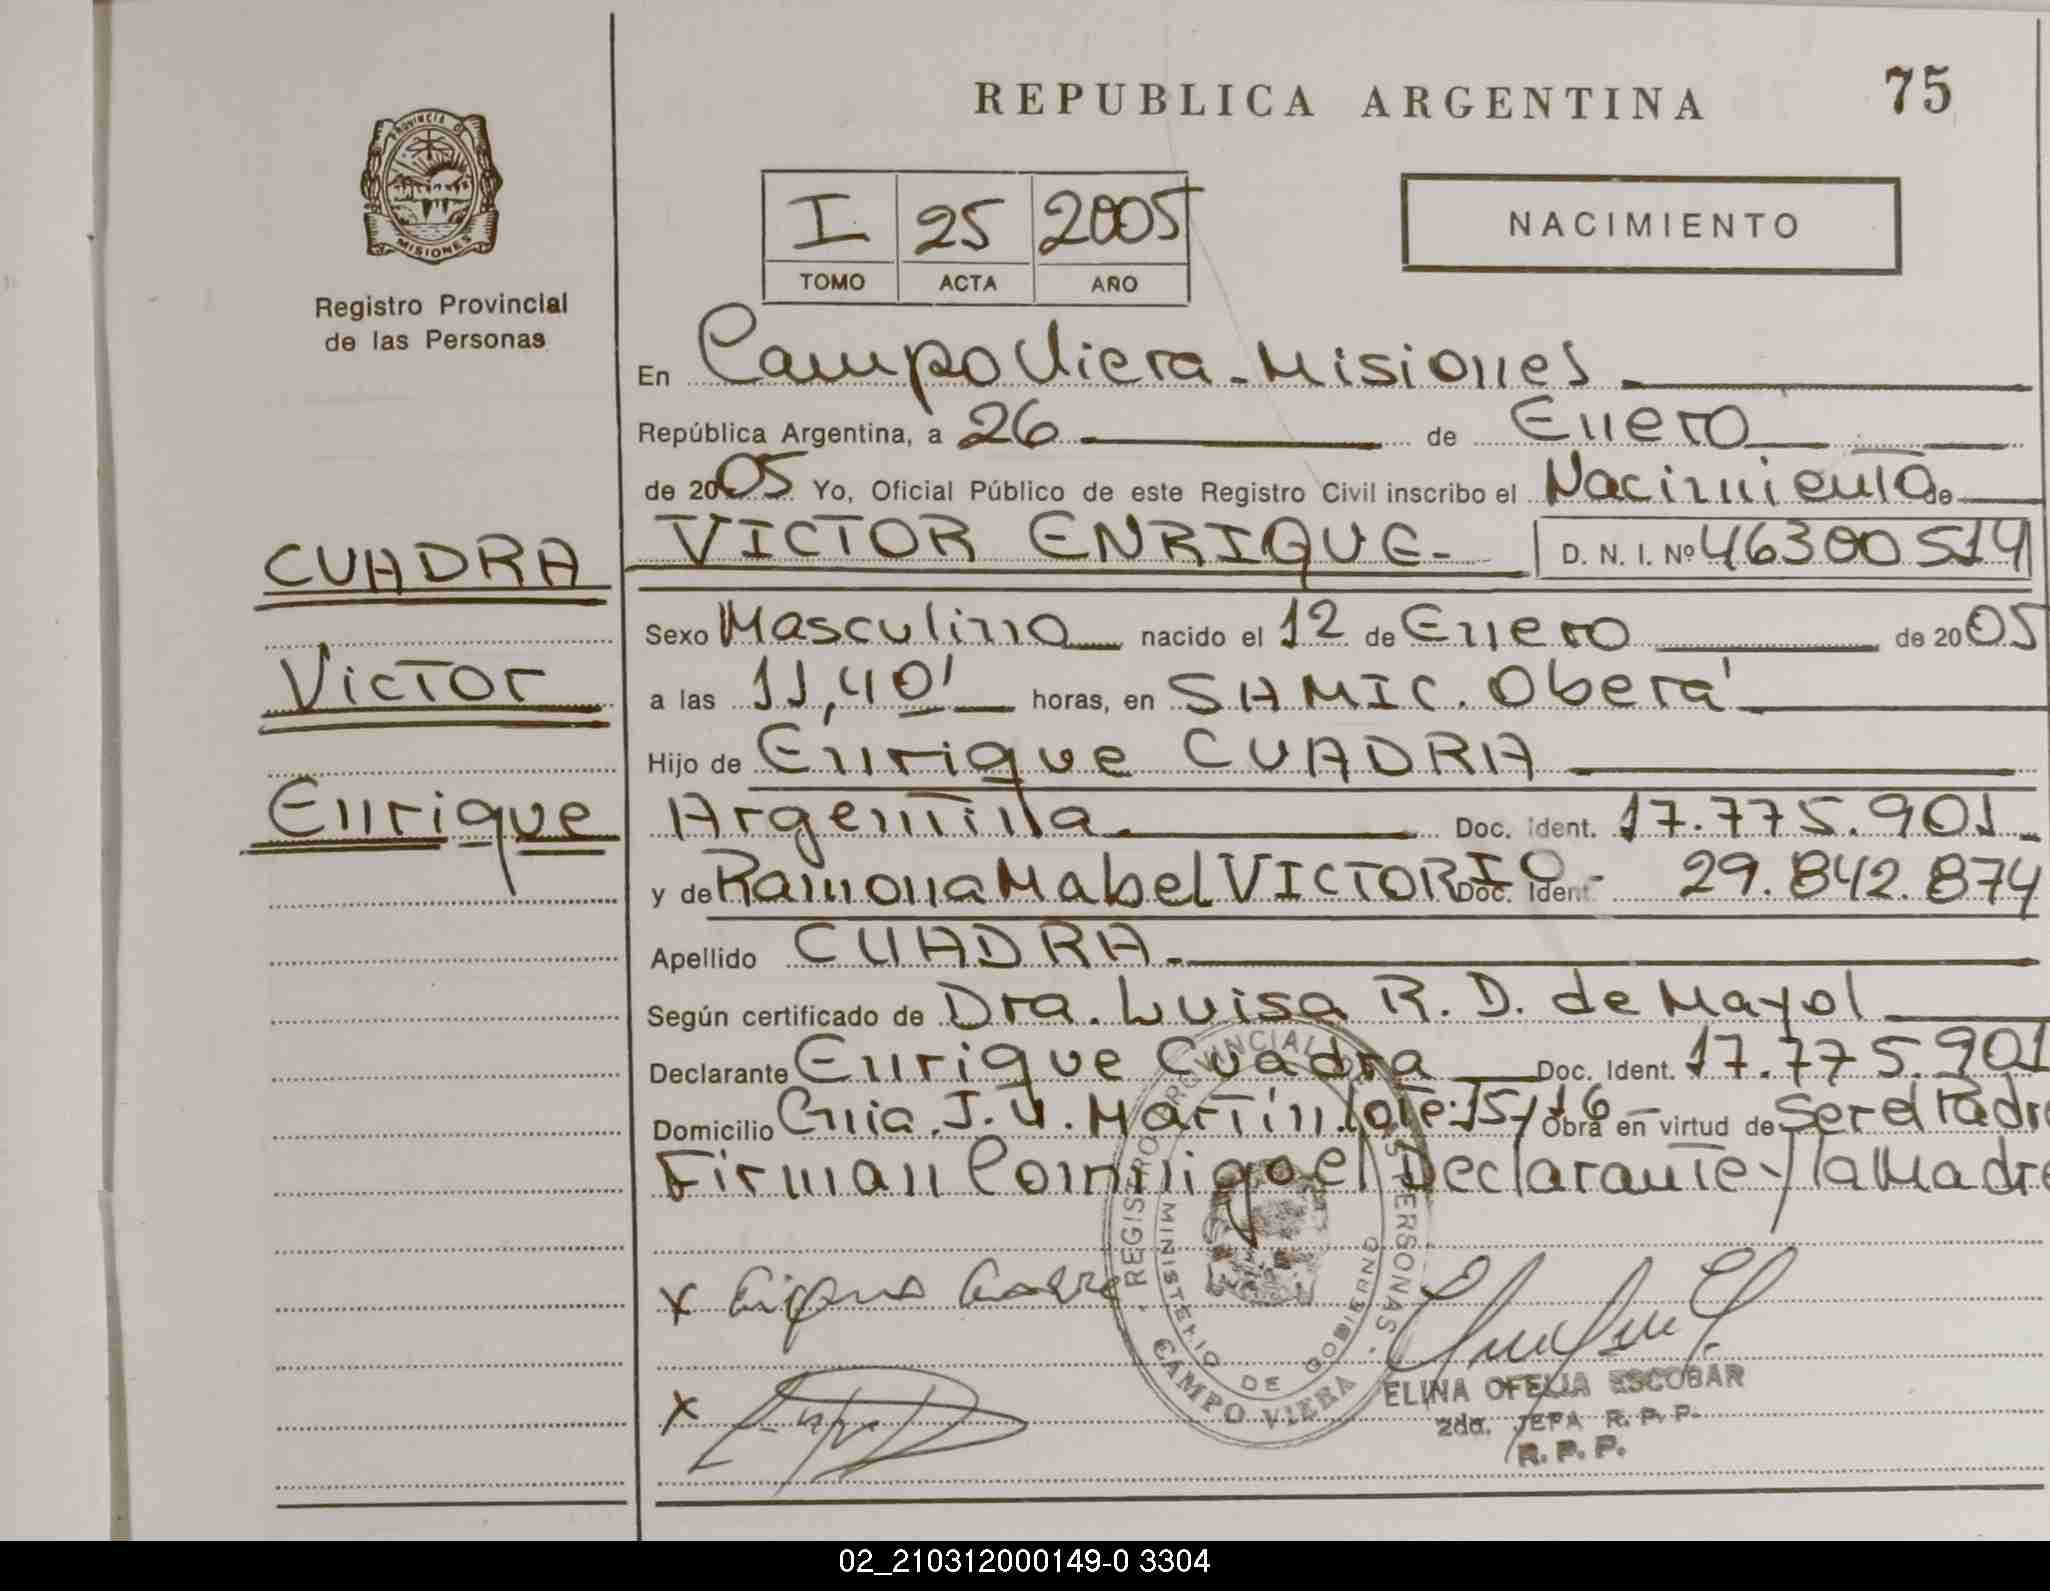 REPUBLICA ARGENTINA
75
PROVINCIA DE
MISIONES
Registro Provincial
de las Personas
I 25 2005
TOMO ACTA AÑO
NACIMIENTO
En Campo Viera - Misiones
República Argentina, a 26 de Enero
de 2005 Yo, Oficial Público de este Registro Civil inscribo el Nacimiento de
VICTOR ENRIQUE- D. N. I. Nº 46300514
CUADRA
Victor
Enrique
Sexo Masculino nacido el 12 de Enero de 2005
a las 11,40' horas, en SAMIC. Oberá
Hijo de Enrique CUADRA
Argentina. Doc. Ident. 17.775.901
y de Ramona Mabel VICTORIO - Doc. Ident. 29.842.874
Apellido CUADRA.-
Según certificado de Dra. Luisa R. D. de Mayol
Declarante Enrique Cuadra Doc. Ident. 17.775.901
Domicilio Cnia. J. U. Martín lote: 15/16 Obra en virtud de Ser el Padre
Firman Conmigo el Declarante y la Madre
X
X
REGISTRO PROVINCIAL PERSONAS.
MINISTERIO DE GOBIERNO
CAMPO VIERA
ELINA OFELIA ESCOBAR
2da. JEFA R. P. P.
R. P. P.
02_210312000149-0 3304